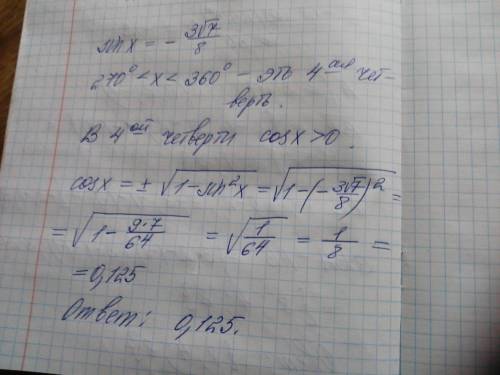 sin x = - 3√7/8
270° < x < 360° - это 4ая чет-
верть.
В 4ой четверти cosx>0.
cosx = ± √(1-sin²x) = √(1-(-3√7/8)²) =
= √(1- 9·7/64) = √(1/64) = 1/8 =
= 0,125
Ответ: 0,125.